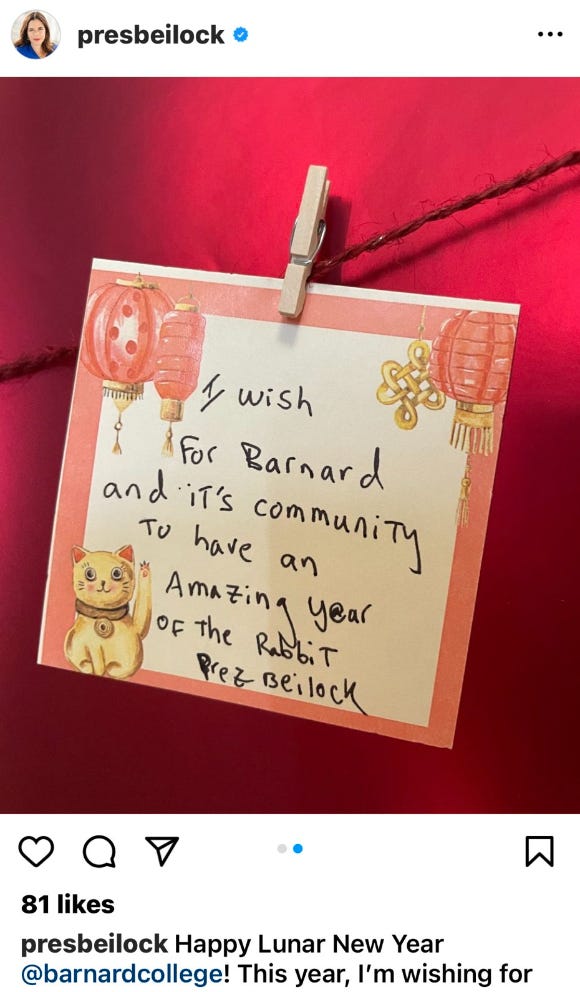 presbeilock
I wish
For Barnard
and it's community
To have an
Amazing year
OF the Rabbit
Prez Beilock
81 likes
presbeilock Happy Lunar New Year
@barnardcollege! This year, I'm wishing for